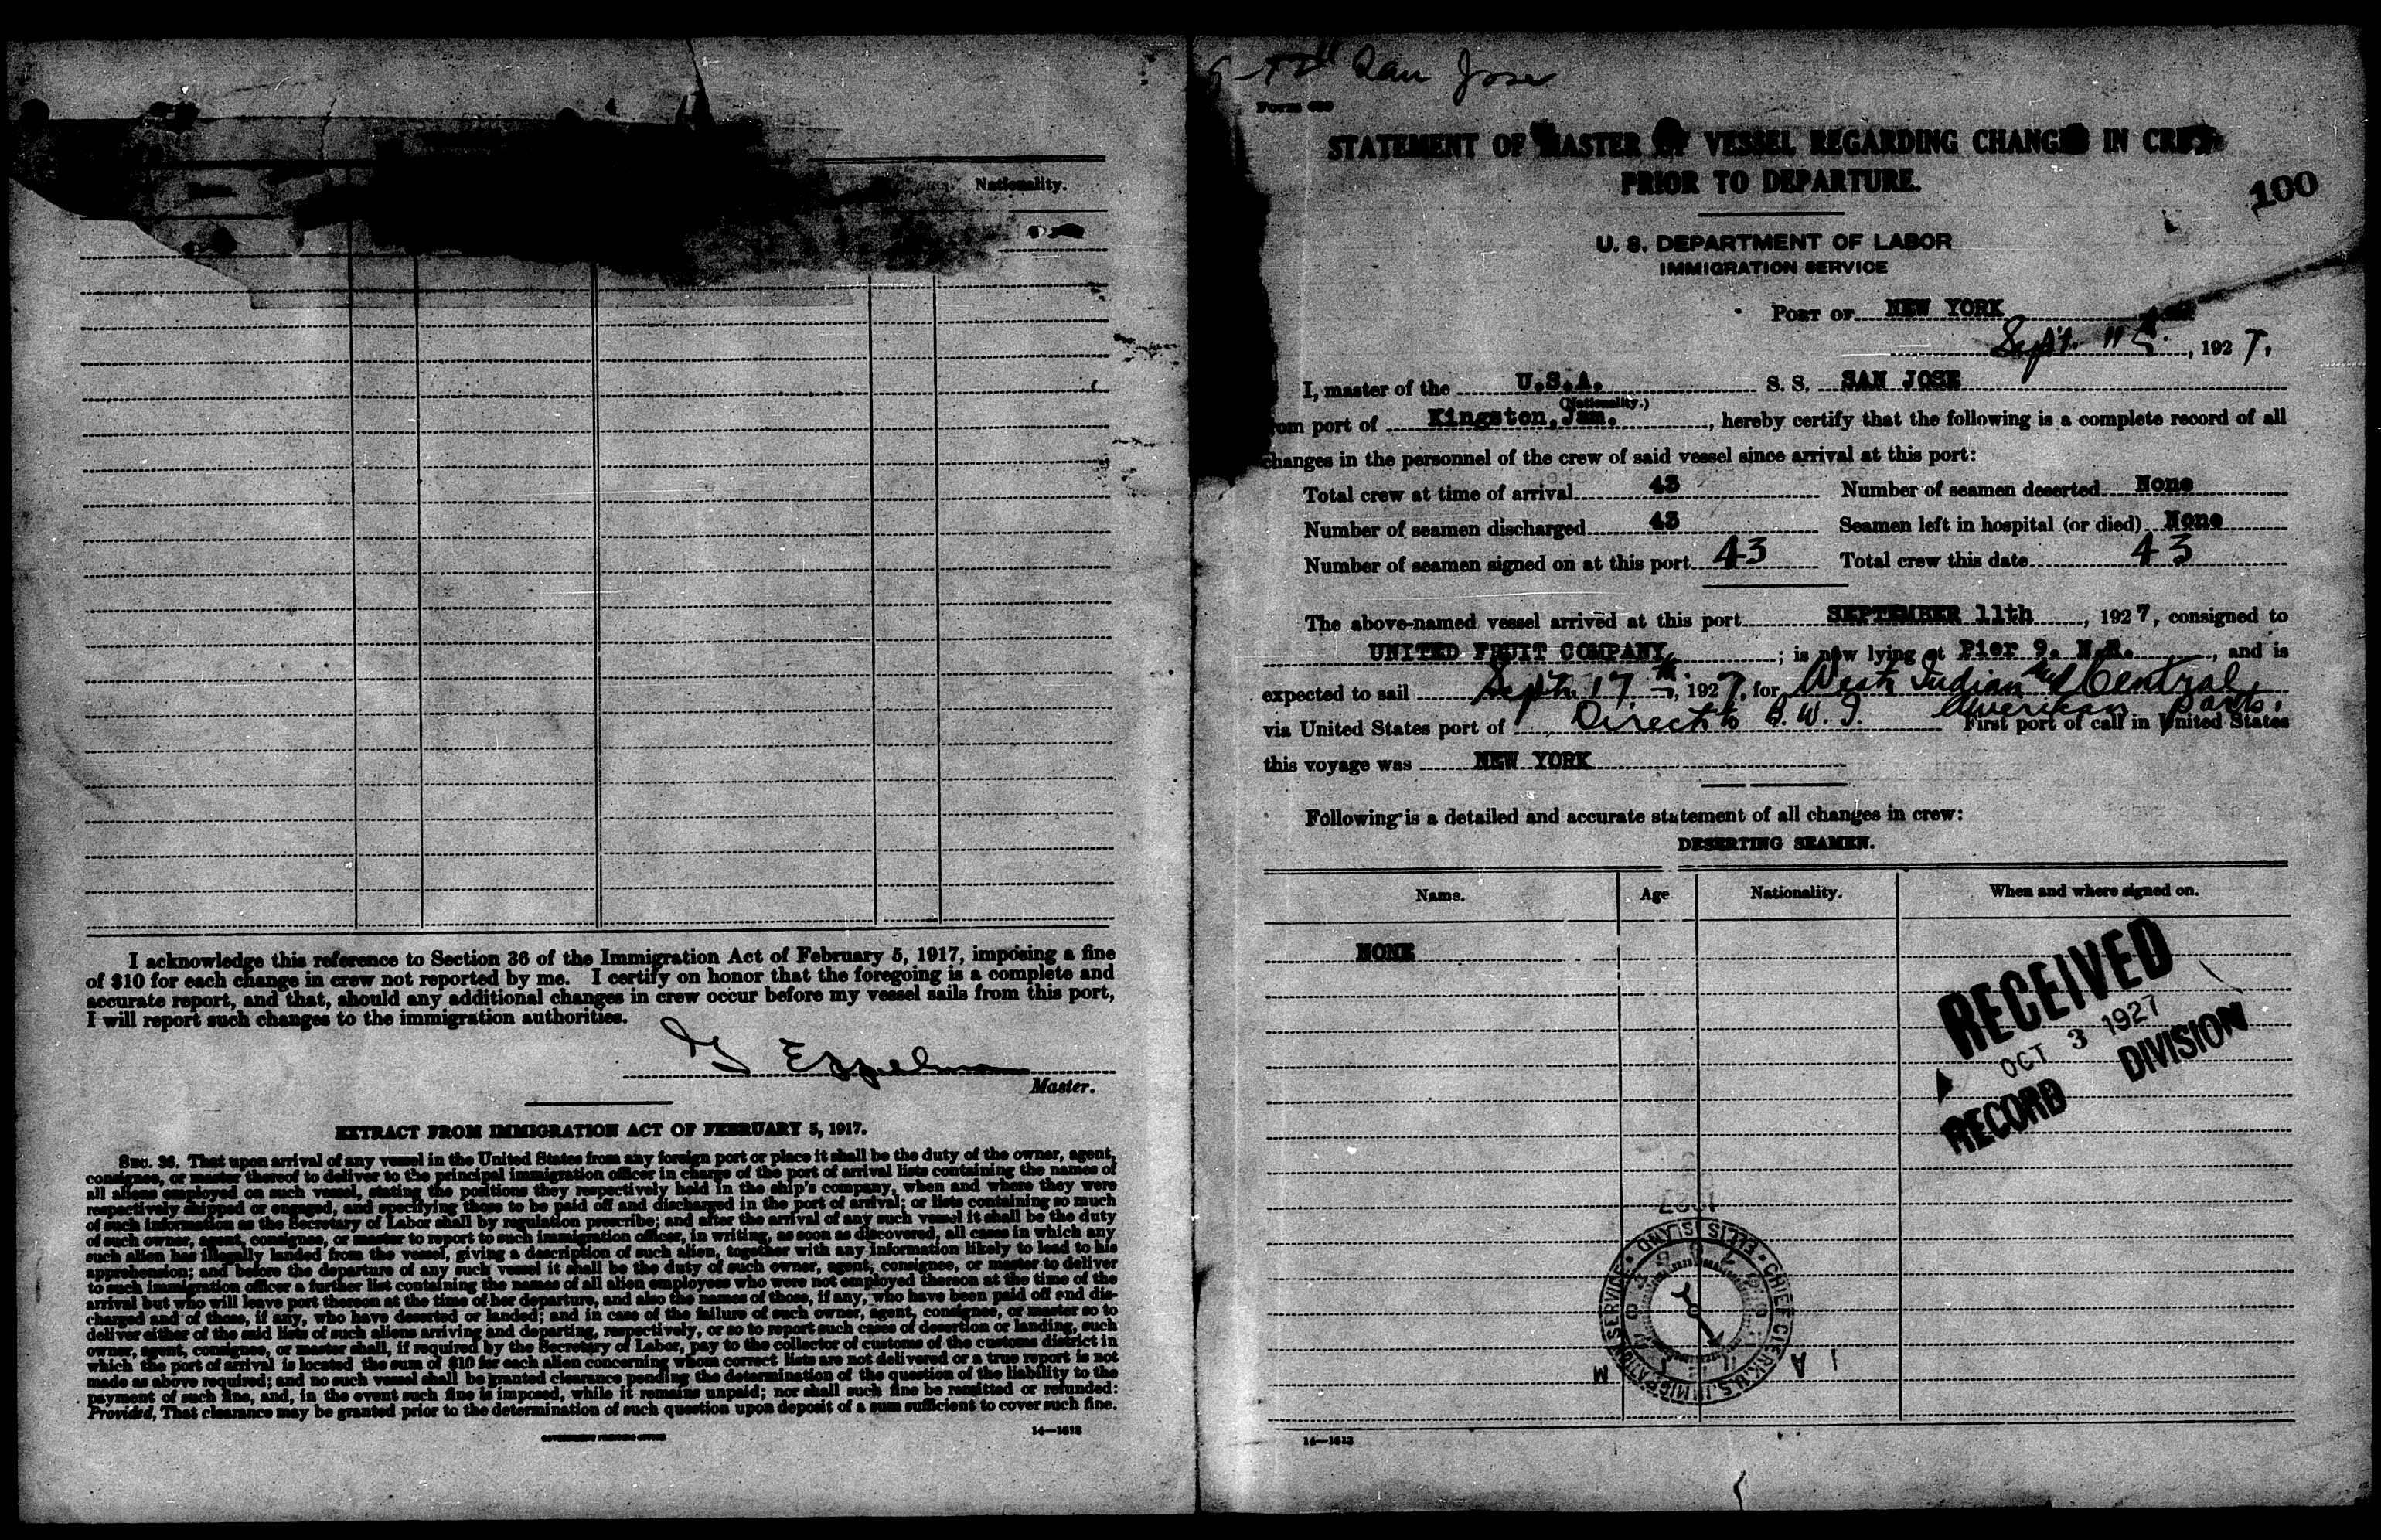 Nationality.
I acknowledge this reference to Section 36 of the Immigration Act of February 5, 1917, imposing a fine
of $10 for each change in crew not reported by me. I certify on honor that the foregoing is a complete and
accurate report, and that, should any additional changes in crew occur before my vessel sails from this port,
I will report such changes to the immigration authorities.
Master.
EXTRACT FROM IMMIGRATION ACT OF FEBRUARY 5, 1917.
SEC. 36. That upon arrival of any vessel in the United States from any foreign port or place it shall be the duty of the owner, agent,
consignee, or master thereof to deliver to the principal immigration officer in charge of the port of arrival lists containing the names of
all aliens employed on such vessel, stating the positions they respectively hold in the ship's company, when and where they were
respectively shipped or engaged, and specifying those to be paid off and discharged in the port of arrival; or lists containing so much
of such information as the Secretary of Labor shall by regulation prescribe; and after the arrival of any such vessel it shall be the duty
of such owner, agent, consignee, or master to report to such immigration officer, in writing, as soon as discovered, all cases in which any
such alien has illegally landed from the vessel, giving a description of such alien, together with any information likely to lead to his
apprehension; and before the departure of any such vessel it shall be the duty of such owner, agent, consignee, or master to deliver
to such immigration officer a further list containing the names of all alien employees who were not employed thereon at the time of the
arrival but who will leave port thereon at the time of her departure, and also the names of those, if any, who have been paid off and dis-
charged and of those, if any, who have deserted or landed; and in case of the failure of such owner, agent, consignee, or master so to
deliver either of the said lists of such aliens arriving and departing, respectively, or so to report such cases of desertion or landing, such
owner, agent, consignee, or master shall, if required by the Secretary of Labor, pay to the collector of customs of the customs district in
which the port of arrival is located the sum of $10 for each alien concerning whom correct lists are not delivered or a true report is not
made as above required; and no such vessel shall be granted clearance pending the determination of the question of the liability to the
payment of such fine, and, in the event such fine is imposed, while it remains unpaid; nor shall such fine be remitted or refunded:
Provided, That clearance may be granted prior to the determination of such question upon deposit of a sum sufficient to cover such fine.
GOVERNMENT PRINTING OFFICE
14—1613
San Jose
Form 689
STATEMENT OF MASTER OF VESSEL REGARDING CHANGES IN CREW
PRIOR TO DEPARTURE.
100
U. S. DEPARTMENT OF LABOR
IMMIGRATION SERVICE
PORT OF NEW YORK
Sept. 1927.
I, master of the U.S.A. S. S. SAN JOSE
(Nationality.)
om port of Kingston, Jam., hereby certify that the following is a complete record of all
changes in the personnel of the crew of said vessel since arrival at this port:
Total crew at time of arrival 43 Number of seamen deserted None
Number of seamen discharged 43 Seamen left in hospital (or died) None
Number of seamen signed on at this port 43 Total crew this date 43
The above-named vessel arrived at this port SEPTEMBER 11th, 1927, consigned to
UNITED FRUIT COMPANY; is now lying at Pier 9, N.R., and is
expected to sail Sept. 17th, 1927, for West Indian and Central
American Ports.
via United States port of Direct to B. W. I. First port of call in United States
this voyage was NEW YORK
Following is a detailed and accurate statement of all changes in crew:
DESERTING SEAMEN.
Name. Age Nationality. When and where signed on.
NONE
RECEIVED
OCT 3 1927
RECORD DIVISION
1927
CHIEF CLERK U.S. IMMIGRATION SERVICE • ELLIS ISLAND •
A M
14—1613